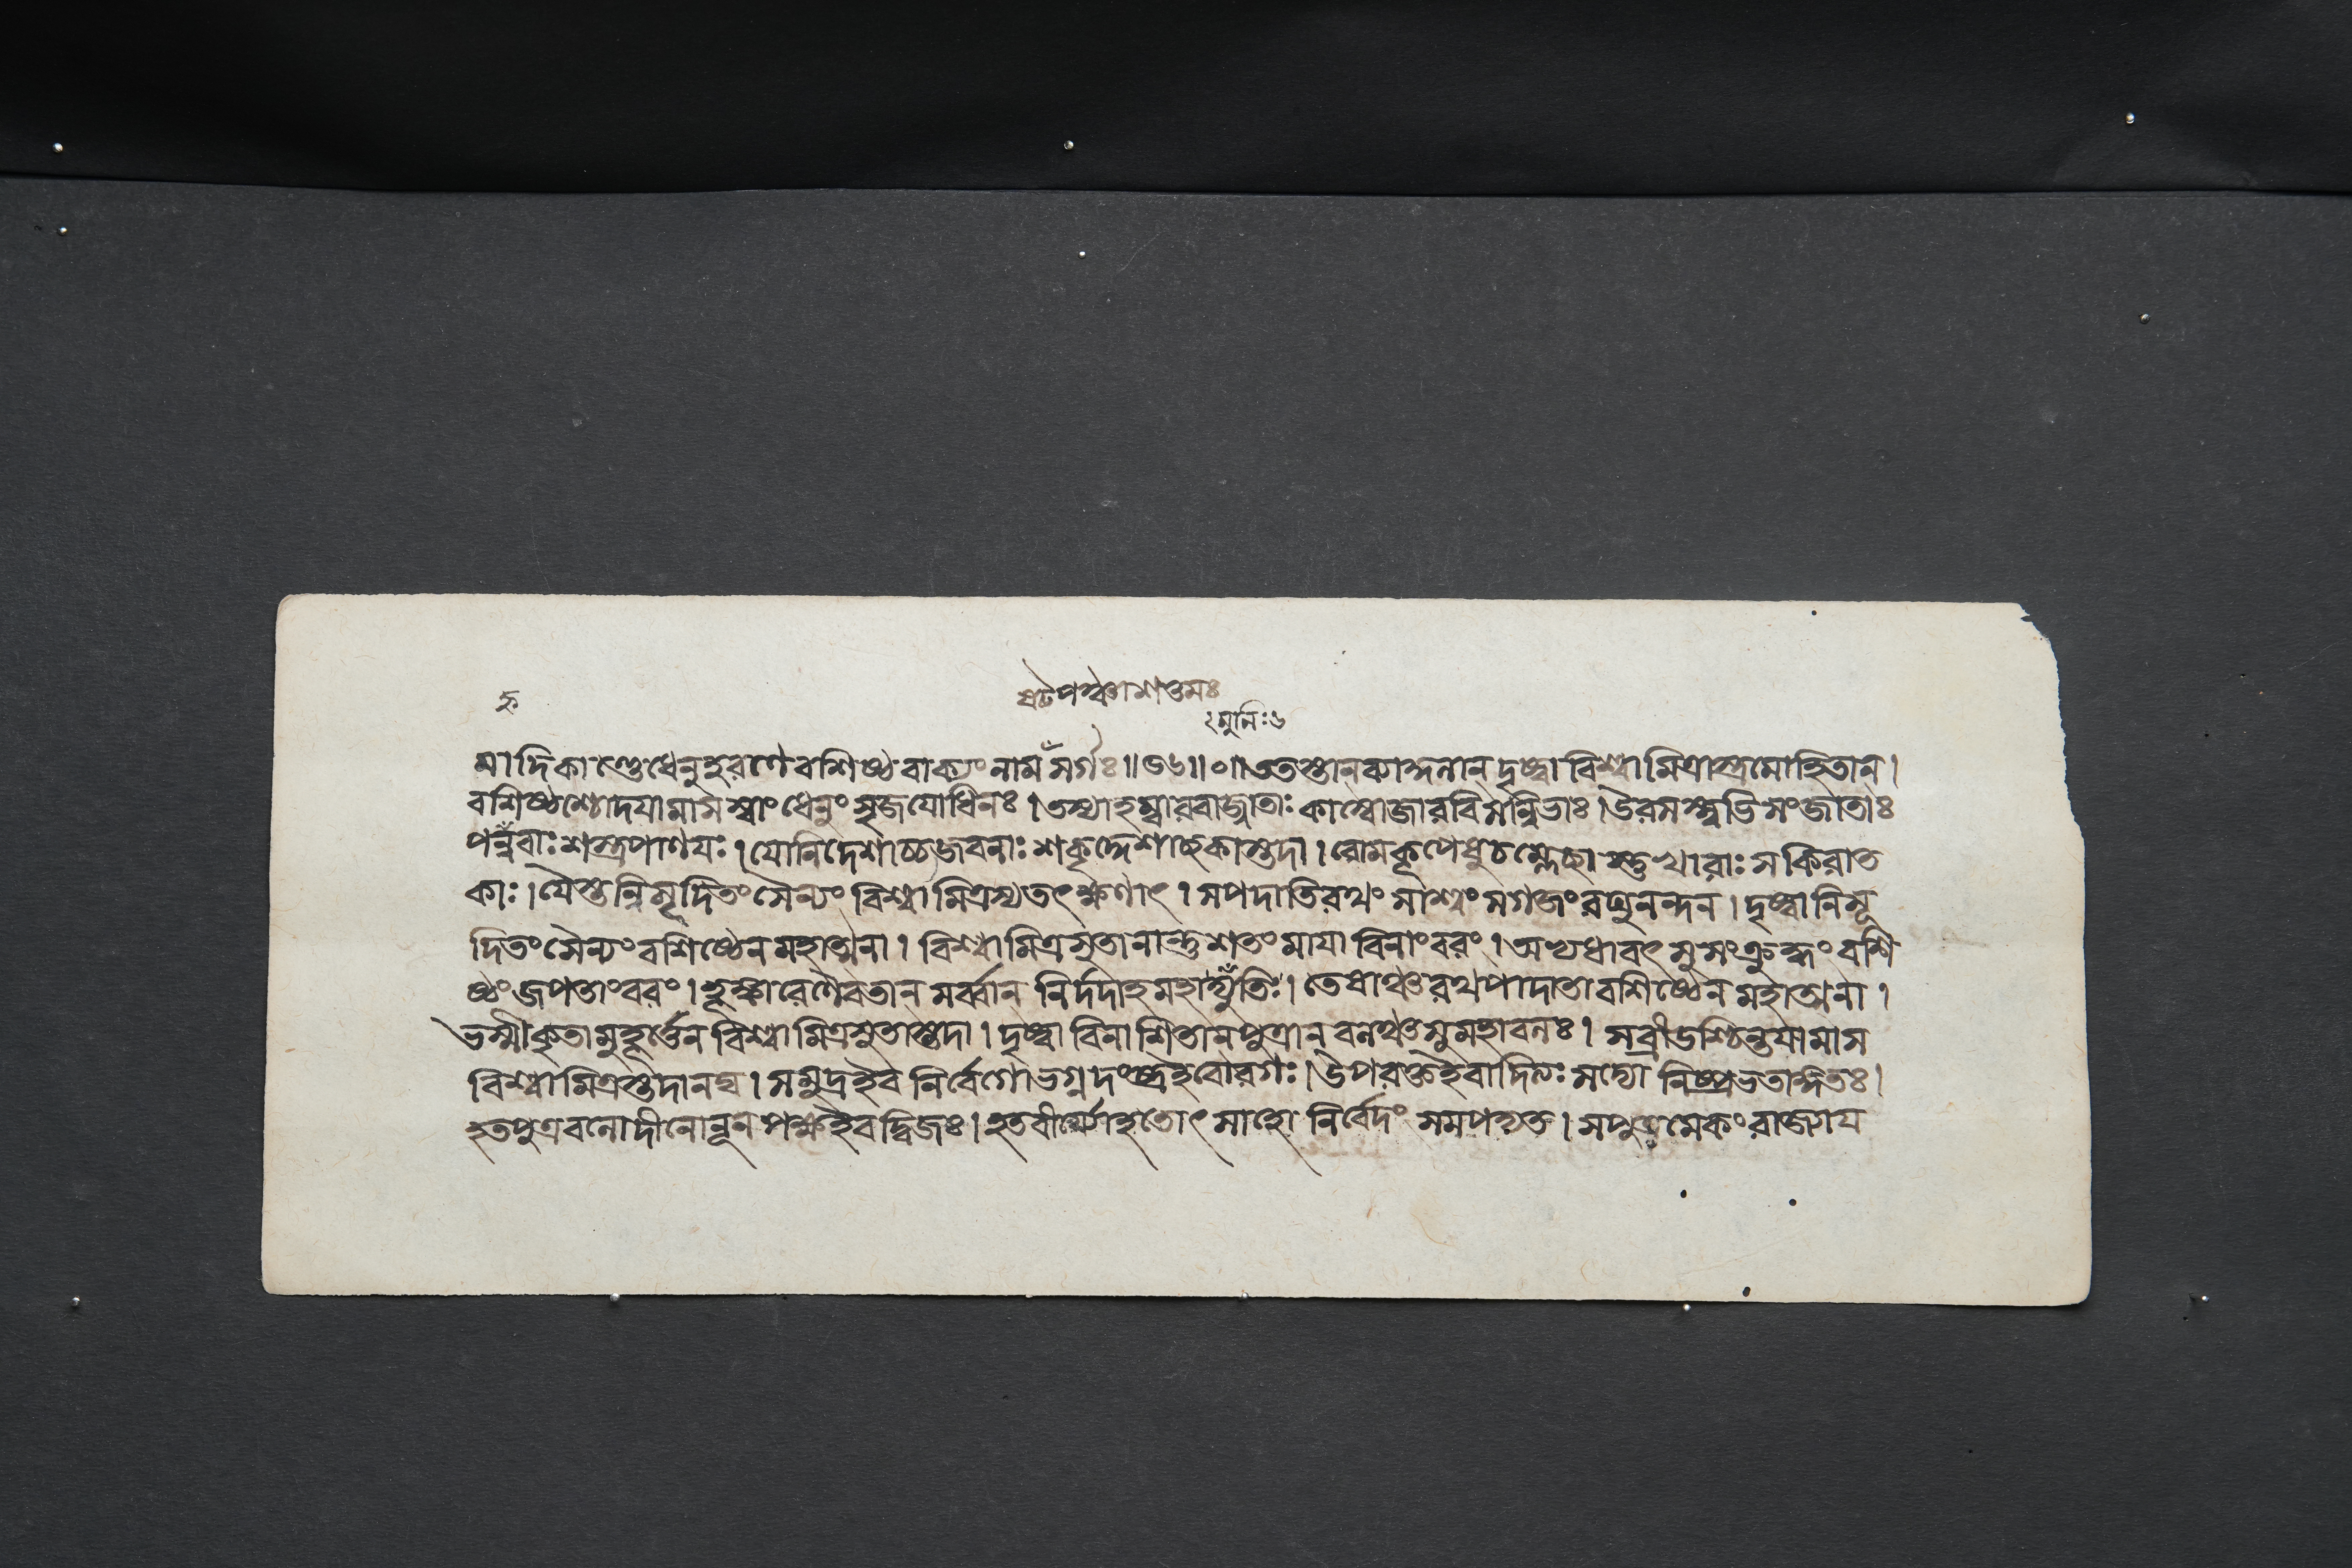 ষট্পঞ্চাশত্তমঃ
মুনিঃ৬
মাদিকাণ্ডে ধেনুহরণে বশিষ্ঠ বাক্যং নাম সর্গঃ॥৫৬॥০॥ততস্তানকান্দনান্ দৃষ্ট্বা বিশ্বামিত্রাস্ত্রমোহিতান।
বশিষ্ঠশ্চোদয়ামাস স্বাং ধেনুং সৃজযোধিনঃ। তস্যাহম্বারবাজ্জাতাঃ কাম্বোজারবিসন্নিভাঃ। উরসস্ত্বভিসংজাতাঃ
পহ্নবাঃ শস্ত্রপাণয়ঃ। যোনিদেশাচ্চজবনাঃ শকৃদ্দেশাচ্ছকাস্তদা। রোমকূপেষুচম্লেচ্ছাস্তুখারাঃ সকিরাত
কাঃ। যৈস্তন্নিসূদিতং সৈন্যং বিশ্বামিত্রস্যতৎক্ষণাৎ। সপদাতিরথং সাশ্বং সগজং রঘুনন্দন। দৃষ্ট্বানিসূ
দিতং সৈন্যং বশিষ্ঠেন মহাত্মনা। বিশ্বামিত্রসুতানান্তুশতং মায়াবিনাংবরং। অভ্যধাবৎ সুসংক্রুদ্ধং বশি
ষ্ঠং জপতাংবরং। হূঙ্কারেণৈবতান্ সর্ব্বান নির্দদাহ মহাদ্যুতিঃ। তেষাঞ্চরথপাদাতা বশিষ্ঠেন মহাত্মনা।
ভস্মীকৃতামুহূর্ত্তেন বিশ্বামিত্রসুতাস্তদা। দৃষ্ট্বা বিনাশিতানপুত্রান বলঞ্চসুমহাবলঃ। সব্রীড়শ্চিন্তয়ামাস
বিশ্বামিত্রস্তদানঘ। সমুদ্রইব নির্বেগোভগ্নদংষ্ট্রইবোরগঃ। উপরক্তইবাদিত্যঃ সদ্যো নিষ্প্রভতাঙ্গতঃ।
হতপুত্রবলোদীনোলূনপক্ষইবদ্বিজঃ। হতবীর্য্যোহতোৎসাহো নির্বেদং সমপদ্যত। সপুত্রমেকং রাজ্যায়